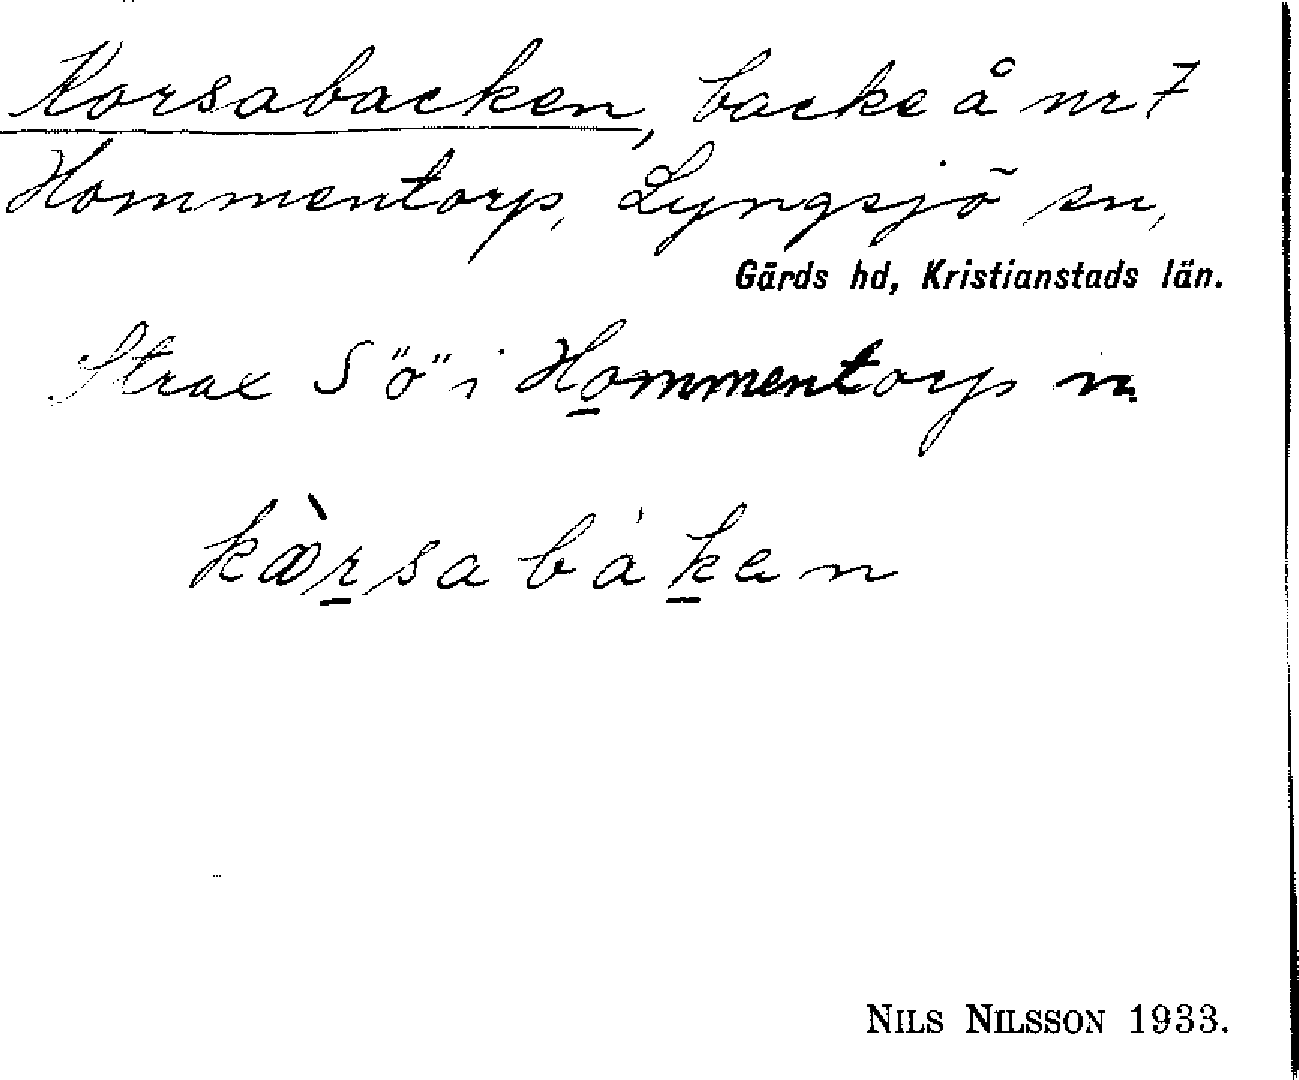 Korsabacken, backe å nr 7
Hommentorp, Lyngsjö sn,
Gärds hd, Kristianstads län.
Strax S "ö" i Hommentorp n.
kæ̀rsabákan
NILS NILSSON 1933.